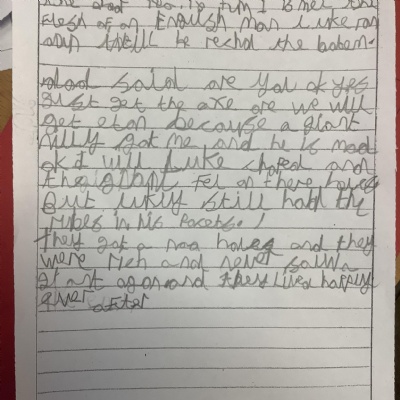 flesh of an English man Luke ran
ooun intill he rechd the botem.
dad said are you ok yes
Just get the axe are we will
get eton because a giant
nilly got me and he is mad
ok it will Luke choped and
the giant fel on there house
But lukly still hald the
rubes in his pocets!
They got a naa house and they
were rich and never saw a
giant agon and they Lived happily
ever after